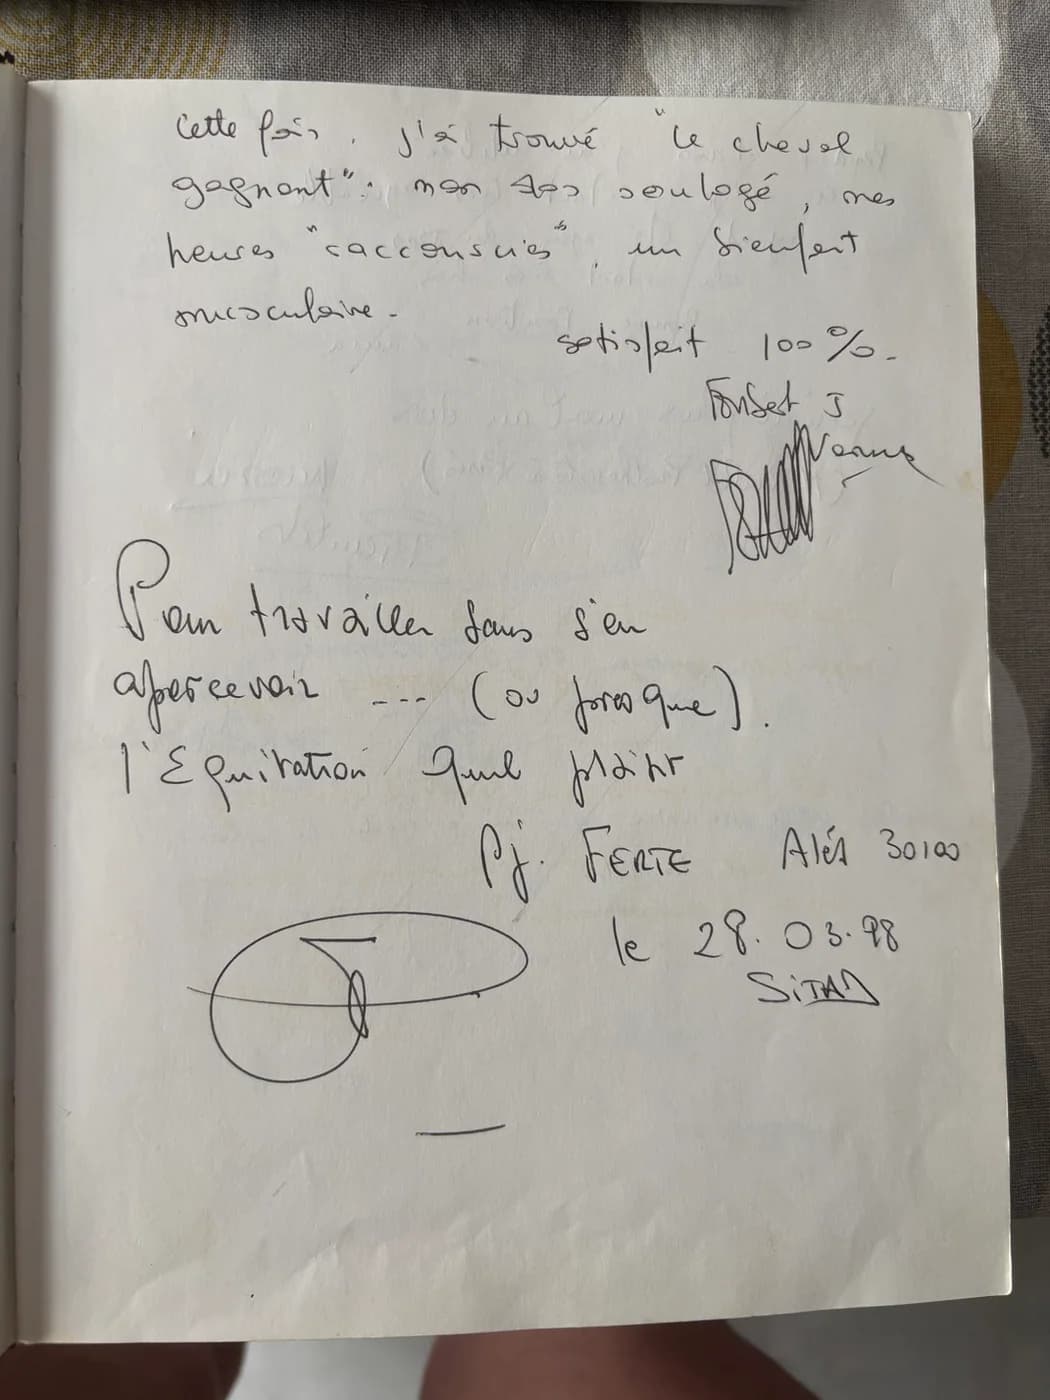 Cette fois, j'ai trouvé "le cheval
gagnant": mon dos soulagé, mes
heures "raccourcies", un bienfait
musculaire.
satisfait 100%.
J
Pour travailler sans s'en
apercevoir --- (ou presque).
l'Equitation quel plaisir
Pj. FERTE Alès 30100
le 28.03.98